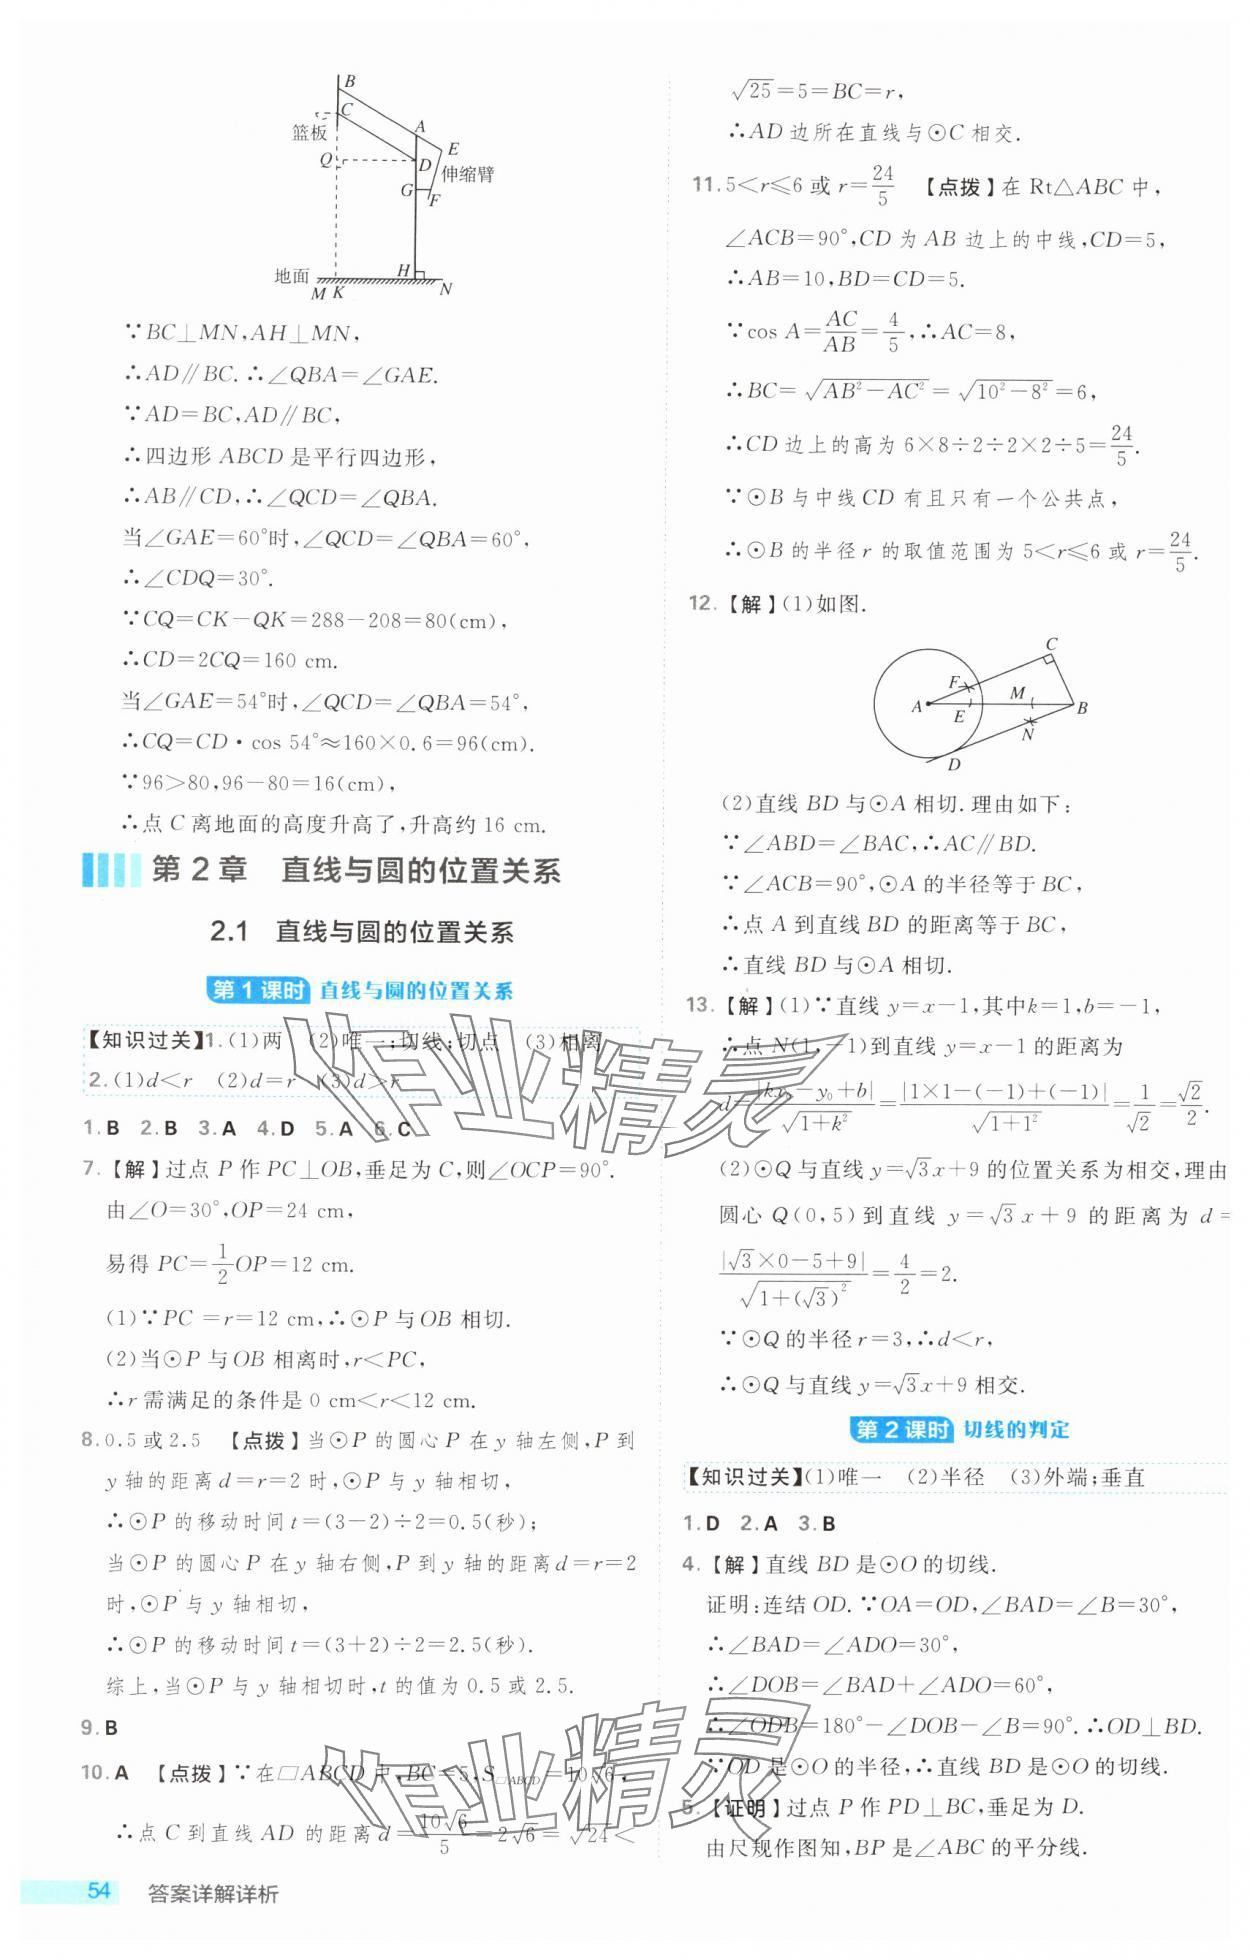 B
C
篮板
A
E
Q
D
伸缩臂
G
F
地面
H
M K
N
∵BC⊥MN,AH⊥MN,
∴AD∥BC.∴∠QBA=∠GAE.
∵AD=BC,AD∥BC,
∴四边形 ABCD 是平行四边形,
∴AB∥CD,∴∠QCD=∠QBA.
当∠GAE=60°时,∠QCD=∠QBA=60°,
∴∠CDQ=30°.
∵CQ=CK-QK=288-208=80(cm),
∴CD=2CQ=160 cm.
当∠GAE=54°时,∠QCD=∠QBA=54°,
∴CQ=CD·cos 54°≈160×0.6=96(cm).
∵96>80,96-80=16(cm),
∴点 C 离地面的高度升高了,升高约 16 cm.
第 2 章 直线与圆的位置关系
2.1 直线与圆的位置关系
第 1 课时 直线与圆的位置关系
【知识过关】1.(1)两 (2)唯一;切线;切点 (3)相离
2.(1)d<r (2)d=r (3)d>r
1.B 2.B 3.A 4.D 5.A 6.C
7.【解】过点 P 作 PC⊥OB,垂足为 C,则∠OCP=90°.
由∠O=30°,OP=24 cm,
易得 PC=1/2OP=12 cm.
(1)∵PC =r=12 cm,∴⊙P 与OB 相切.
(2)当⊙P 与OB 相离时,r<PC,
∴r 需满足的条件是 0 cm<r<12 cm.
8.0.5或2.5 【点拨】当⊙P 的圆心 P 在 y 轴左侧,P 到
y 轴的距离 d=r=2 时,⊙P 与 y 轴相切,
∴⊙P 的移动时间 t=(3-2)÷2=0.5(秒);
当⊙P 的圆心 P 在 y 轴右侧,P 到 y 轴的距离 d=r=2
时,⊙P 与 y 轴相切,
∴⊙P 的移动时间 t=(3+2)÷2=2.5(秒).
综上,当⊙P 与 y 轴相切时,t 的值为 0.5 或 2.5.
9.B
10.A 【点拨】∵在□ABCD 中,BC=5,S□ABCD=10√6,
∴点 C 到直线 AD 的距离 d=10√6/5=2√6=√24<
54 答案详解详析
√25=5=BC=r,
∴AD 边所在直线与⊙C 相交.
11.5<r≤6 或 r=24/5 【点拨】在 Rt△ABC 中,
∠ACB=90°,CD 为 AB 边上的中线,CD=5,
∴AB=10,BD=CD=5.
∵cos A=AC/AB=4/5,∴AC=8,
∴BC=√(AB²-AC²)=√(10²-8²)=6,
∴CD 边上的高为 6×8÷2÷2×2÷5=24/5.
∵⊙B 与中线 CD 有且只有一个公共点,
∴⊙B 的半径 r 的取值范围为 5<r≤6 或 r=24/5.
12.【解】(1)如图.
C
F
M
A
E
B
N
D
(2)直线 BD 与⊙A 相切.理由如下:
∵∠ABD=∠BAC,∴AC∥BD.
∵∠ACB=90°,⊙A 的半径等于 BC,
∴点 A 到直线 BD 的距离等于 BC,
∴直线 BD 与⊙A 相切.
13.【解】(1)∵直线 y=x-1,其中k=1,b=-1,
∴点 N(1,-1)到直线 y=x-1 的距离为
d=|kx₀-y₀+b|/√(1+k²)=|1×1-(-1)+(-1)|/√(1+1²)=1/√2=√2/2.
(2)⊙Q 与直线 y=√3x+9 的位置关系为相交,理由
圆心 Q(0,5)到直线 y=√3x+9 的距离为 d=
|√3×0-5+9|/√(1+(√3)²)=4/2=2.
∵⊙Q 的半径 r=3,∴d<r,
∴⊙Q 与直线 y=√3x+9 相交.
第 2 课时 切线的判定
【知识过关】(1)唯一 (2)半径 (3)外端;垂直
1.D 2.A 3.B
4.【解】直线 BD 是⊙O 的切线.
证明:连结 OD.∵OA=OD,∠BAD=∠B=30°,
∴∠BAD=∠ADO=30°,
∴∠DOB=∠BAD+∠ADO=60°,
∴∠ODB=180°-∠DOB-∠B=90°.∴OD⊥BD.
∵OD 是⊙O 的半径,∴直线 BD 是⊙O 的切线.
5.【证明】过点 P 作 PD⊥BC,垂足为 D.
由尺规作图知,BP 是∠ABC 的平分线.
作业精灵
作业精灵